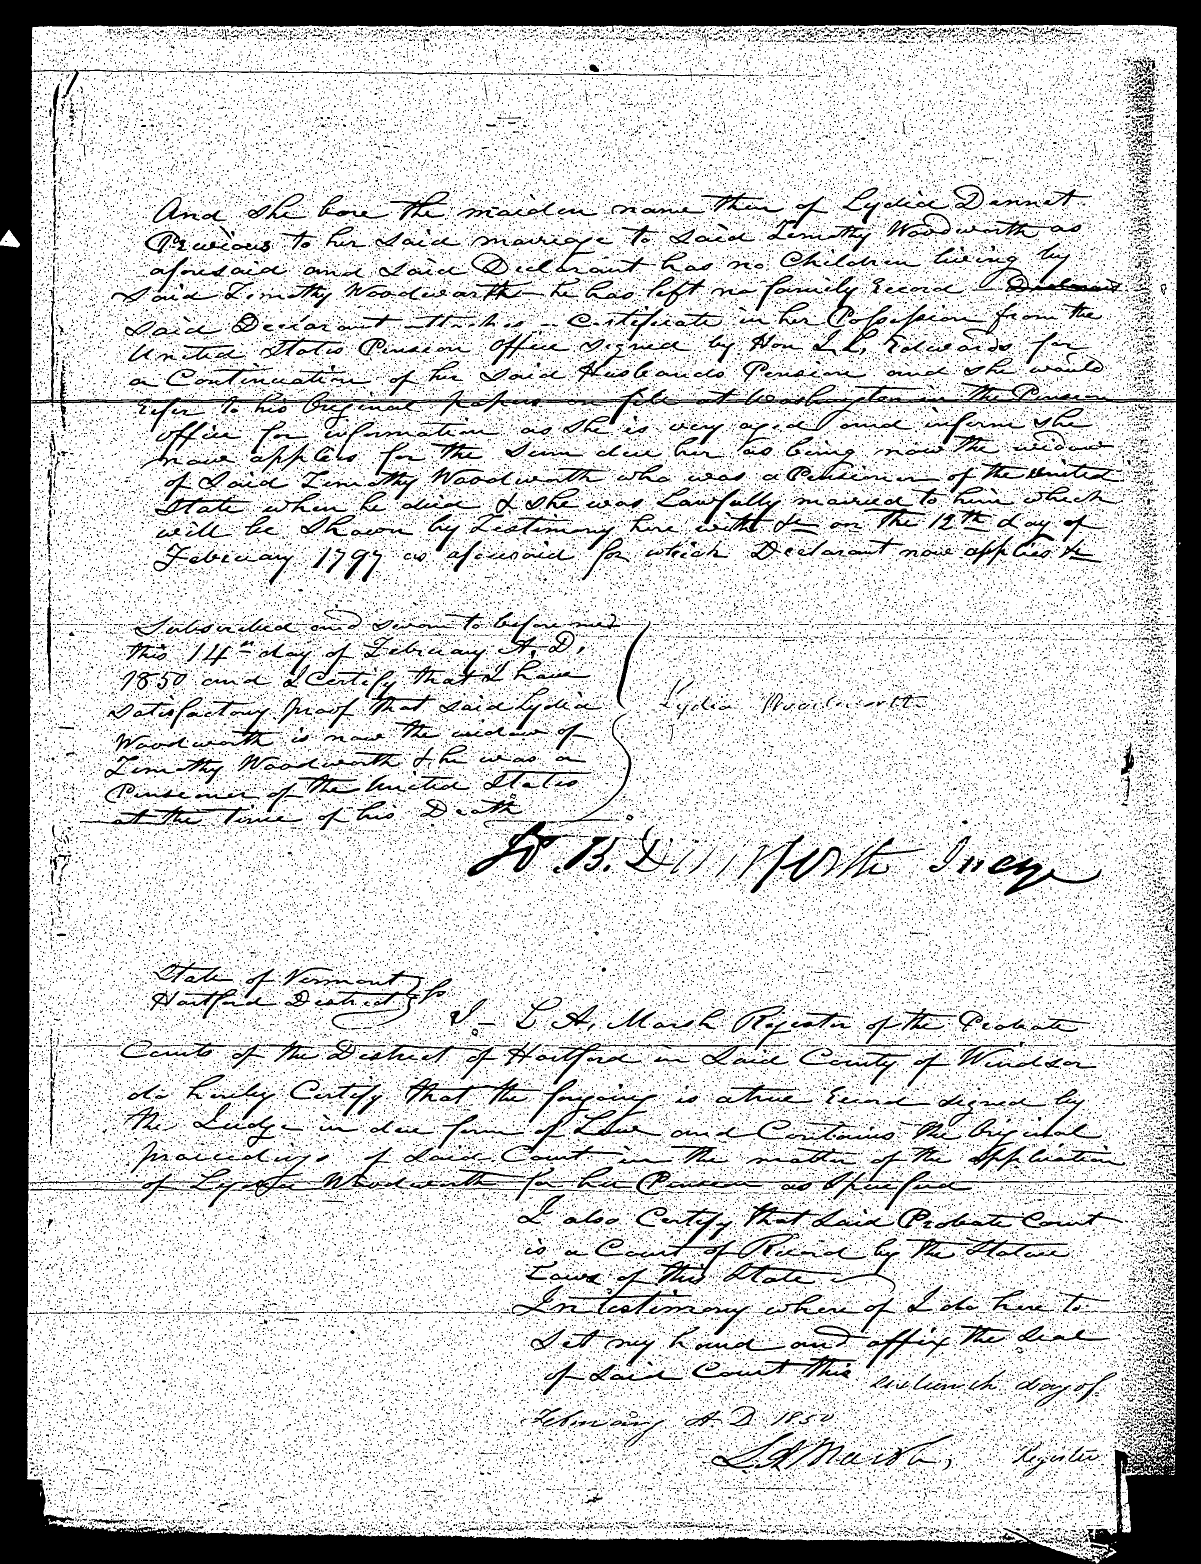 And she bore the maiden name then of Lydia Dannat
Previous to her said marrige to said Timothy Woodworth as
aforesaid and said Declarant has no Children living by
said Timothy Woodworth he has left no family Record Declarant
said Declarant attaches a Certificate in her Possession from the
United States Pension Office signed by Hon J. L. Edwards for
a Continuation of her said Husbands Pension and she would
refer to his Original papers on file at Washington in the Pension
office for information as she is very aged and infirm she
now applies for the Sum due her as being now the widow
of said Timothy Woodworth who was a Pensioner of the united
State when he died & she was Lawfully married to him which
will be Shown by Testimony here with &c on the 12th day of
February 1797 as aforesaid for which Declarant now applies &c
Subscribed and sworn to before me
this 14th day of February A. D.
1850 and I Certify that I have
satisfactory proof that said Lydia
Woodworth is now the widow of
Timothy Woodworth & he was a
Pensioner of the United States
at the time of his Death
Lydia Woodworth
B. Judge
State of Vermont
Hartford District ss
I L A. Marsh Register of the Probate
Courts of the District of Hartford in said County of Windsor
do hereby Certify that the forgoing is a true Record signed by
the Judge in due form of Law and Contains the Original
proceedings of said Court in the matter of the application
of Lydia Woodworth for her Pension
I also Certify that said Probate Court
is a Court of Record by the Statute
Laws of this State
In testimony where of I do here to
set my hand and affix the seal
of said Court this sixteenth day of
February A. D 1850
L. A Marsh, Register